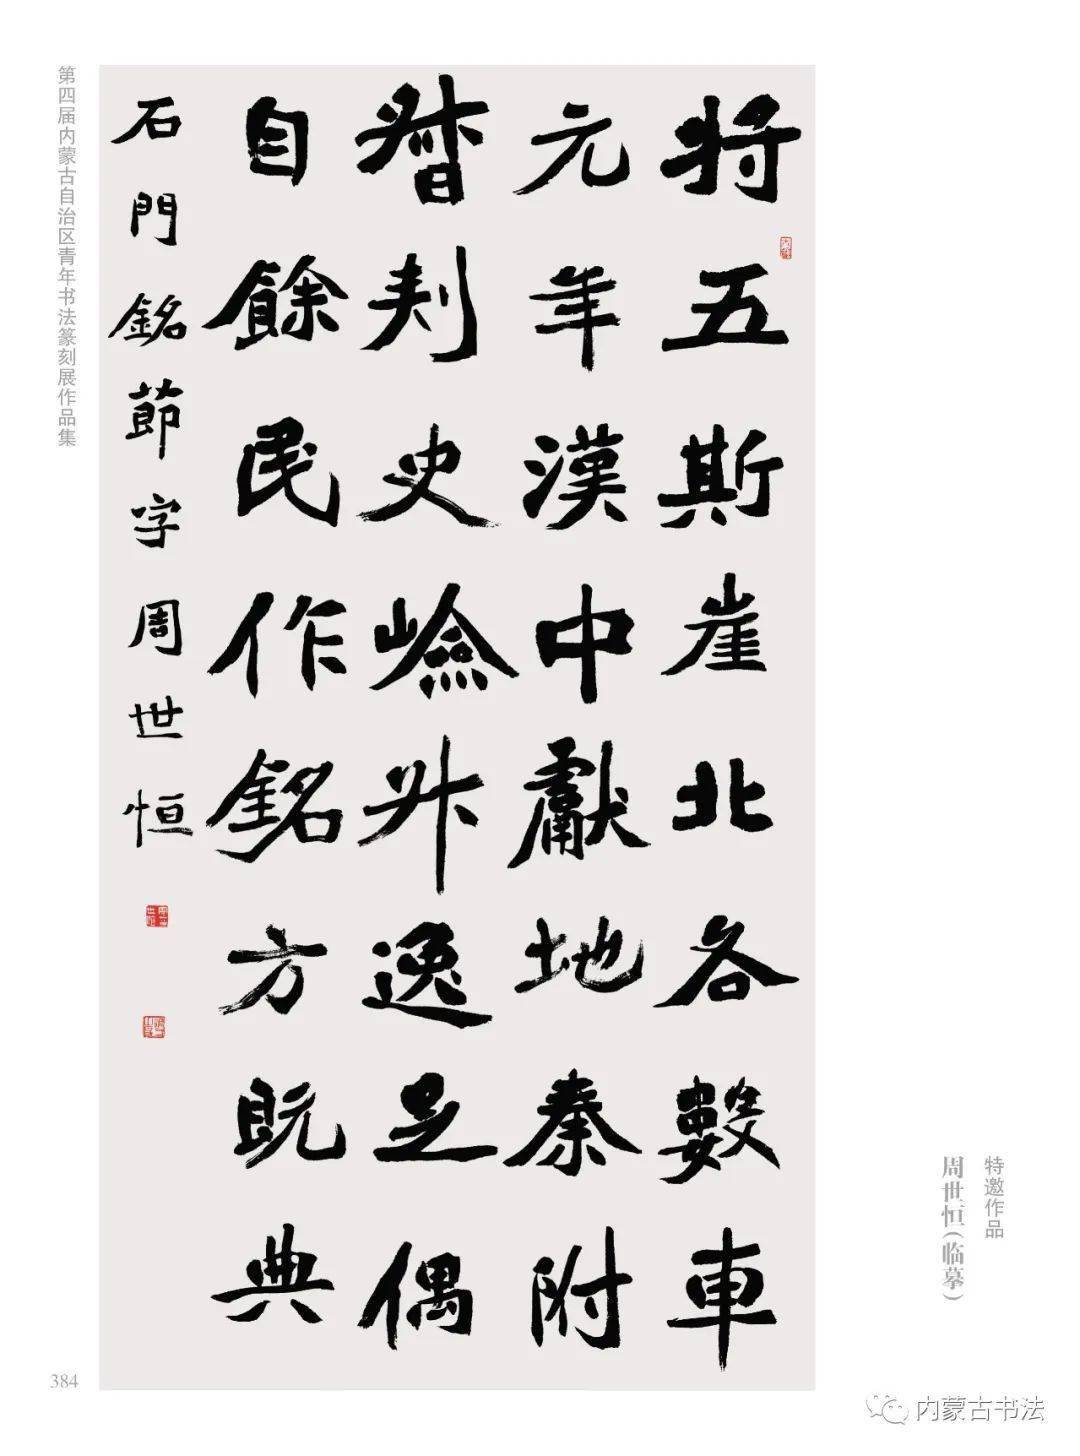 第四届内蒙古自治区青年书法篆刻展作品集
将五斯崖北各數車
元年漢中獻地秦附
督刾史嶮升逸足偶
自餘民作銘方既典
石門銘節字周世恒
特邀作品
周世恒(临摹)
384
内蒙古书法